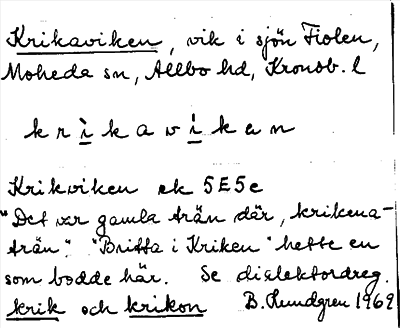 Krikaviken, vik i sjön Fiolen,
Moheda sn, Allbo hd, Kronob. l
k r ì̱ k a v í̱ k e n
Krikviken ek 5E5e
"Det var gamla trän där, krikena-
trän". "Britta i Kriken" hette en
som bodde här. Se dialektordreg.
krik och krikon B. Lundgren 1969